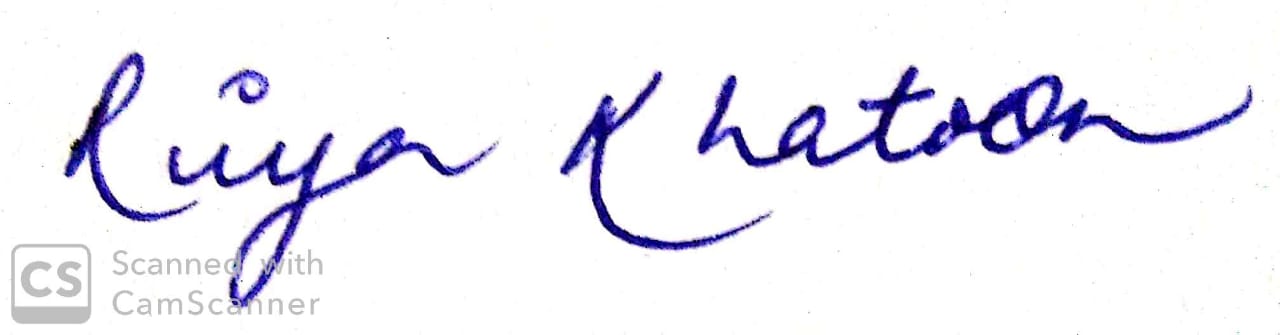 Riya Khatoon
CS Scanned with
CamScanner